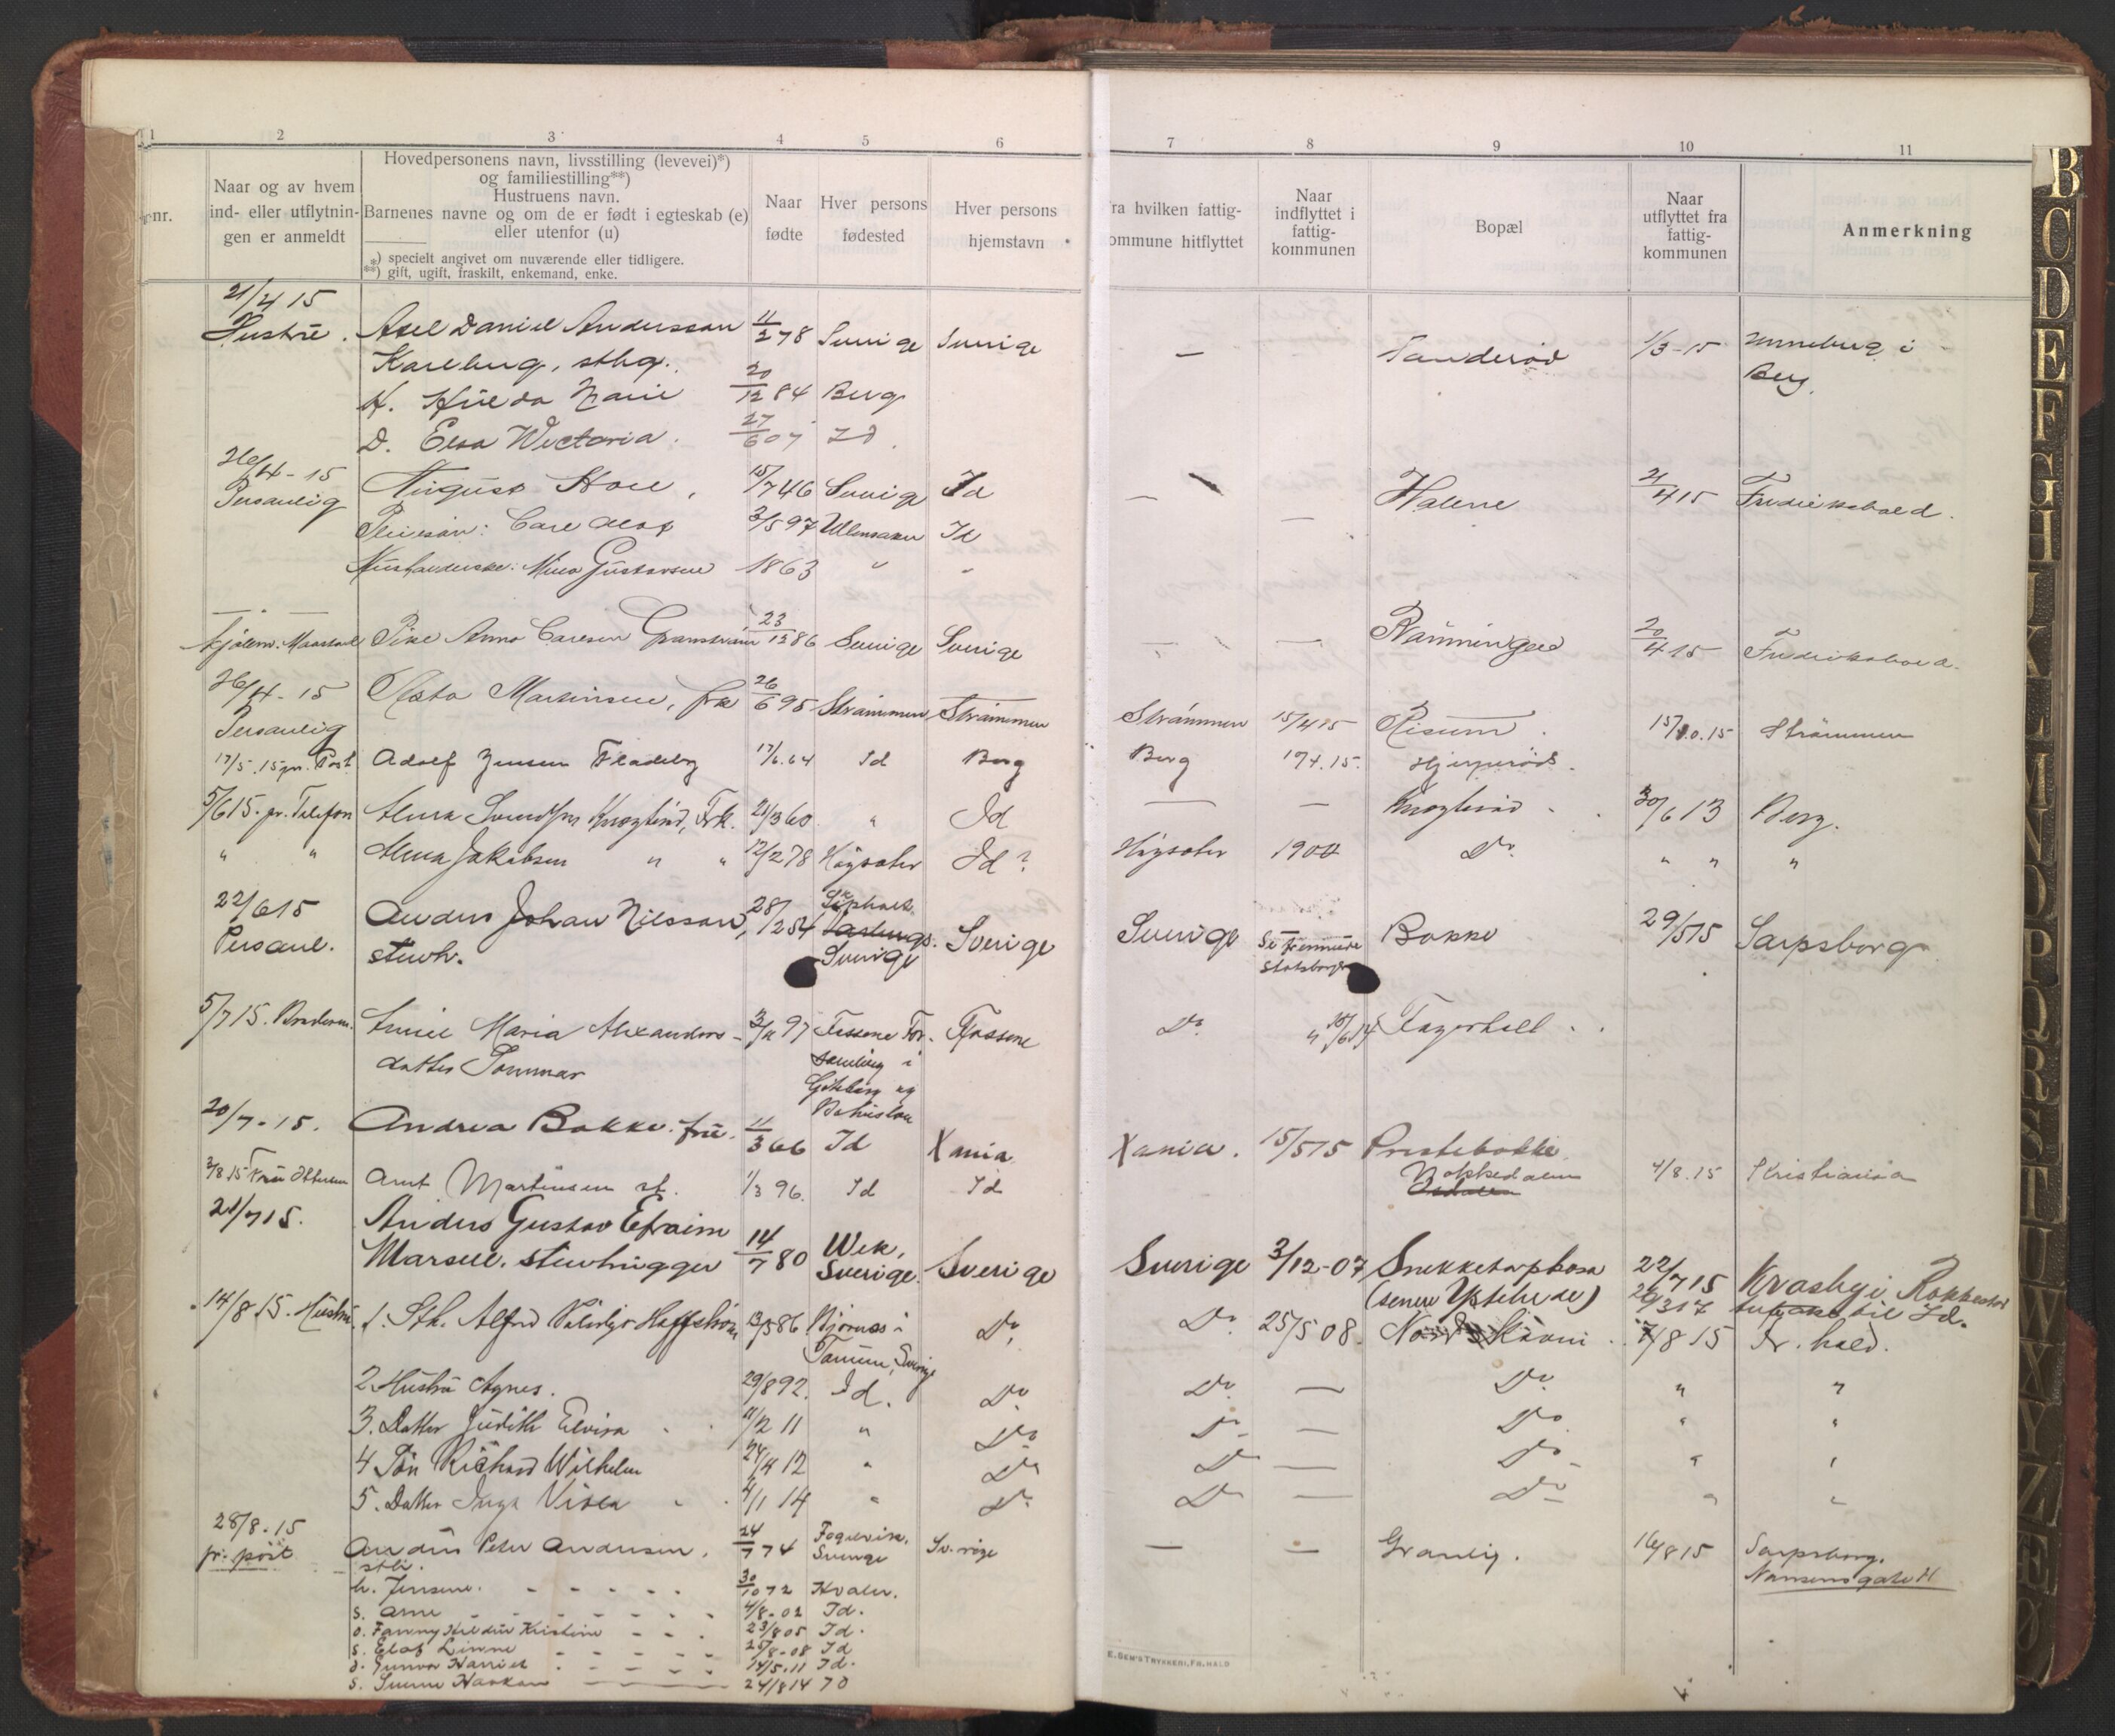 1 2 3 4 5 6 7 8 9 10 11
nr.
Naar og av hvem
ind- eller utflytnin-
gen er anmeldt
Hovedpersonens navn, livsstilling (levevei)*)
og familiestilling**)
Hustruens navn.
Barnenes navne og om de er født i egteskab (e)
eller utenfor (u)
*) specielt angivet om nuværende eller tidligere.
**) gift, ugift, fraskilt, enkemand, enke.
Naar
fødte
Hver persons
fødested
Hver persons
hjemstavn
ra hvilken fattig-
ommune hitflyttet
Naar
indflyttet i
fattig-
kommunen
Bopæl
Naar
utflyttet fra
fattig-
kommunen
Anmerkning
21/4 15
Hustru. Axel Daniel Andersson 11/2 78 Sverige Sverige — Tanderød 1/3-15 Unneberg i
Karlberg, sthg. Berg.
H. Hilda Marie 20/12 84 Berg
D. Elsa Wictoria. 27/6 07 Id.
26/4-15
Personlig August Hole, 15/7 46 Sverige Id — Halene 21/4 15 Fredrikshald.
Pleiesøn: Carl Olaf 3/5 97 Ullensaker Id —
Husholderske: Mina Gustavsen 1863 " "
Pike Anna Carlson Granström 23/12 86 Sverige Sverige — — Rønningen 20/4 15 Fredrikshald.
26/4-15
Personlig Martinsen, frk 26/6 95 Strømmen Strømmen Strømmen 15/4 15 Risum. 15/10.15 Strømmen
17/5.15 pr. Post. Adolf Jensen Fladeby 17/6.64 Id Berg Berg 17/4.15. Hjerperöds.
5/6 15. pr. Telefon Frk. 21/3 60 " Id — — 30/6 13 Berg.
" " Jakobsen " " 12/2 78 Høysæter Id? Høysæter 1900 Do. " " "
22/6 15
Personl. Anders Johan Nilsson, 28/2 54 Sverige Sverige Sverige Se fremmede Bokke 29/5 15 Sarpsborg
stenh. statsborgere
5/7 15. Maria Alexanders- 97 Fossene For- Fossene Do " Fagerholt.
datter Sommar samling i
Göteborg og
Bohuslän
20/7-15. Andrea Bakke. frue. 11/3 66 Id Xania Xania. 15/5 15 Prestebakke
3/8 15 Fru Ottersen Arnt Martinsen 1/3 96. Id Id Bakkedalen 4/8.15 Kristiania
21/7 15. Anders Gustav Efraim
Marsell. stenhugger 14/7 80 Wek, Sverige. Sverige Sverige 3/12-07 Snekketorpkosa 22/7 15 Krosbyi Rakkestad
(senere Ystehede) til Id.
14/8 15. Hustru. 1. Sth. Alfred Haffström 13/5 86 Bjørnes i Do. Do. 25/5 08. 7/8 15 Fr. hald.
Tanum, Sverige
2. Hustru Agnes. 29/8 92. Id. Do. Do. — Do. " "
3. Datter Judith Elvira 11/2 11 " Do Do — Do " "
4 Søn Richard Wilhelm 24/4 12 " Do Do — Do " "
5. Datter Inga Viola 4/1 14 " Do. Do — Do " "
28/8.15
pr. post Anders Peter Andersen. 24/7 74 Fogelvik, Sverige Sverige — — Granlig. 16/8 15 Sarpsborg.
sth. Nansens gate
h. Jensine. 30/10 72 Hvaler.
s. Arne 4/8-02 Id.
d. Fanny Hildur Kristine 23/8 05 Id.
s. Elof Linne 25/8-08 Id
d. Gunvor Harriet 14/5.11 Id.
s. Sverre Haakon 24/8 14 Id
E. SEM'S TRYKKERI, FR.HALD
B
C
D
E
F
G
H
I
K
L
M
N
O
P
Q
R
S
T
U
W
X
Y
Z
Æ
Ø